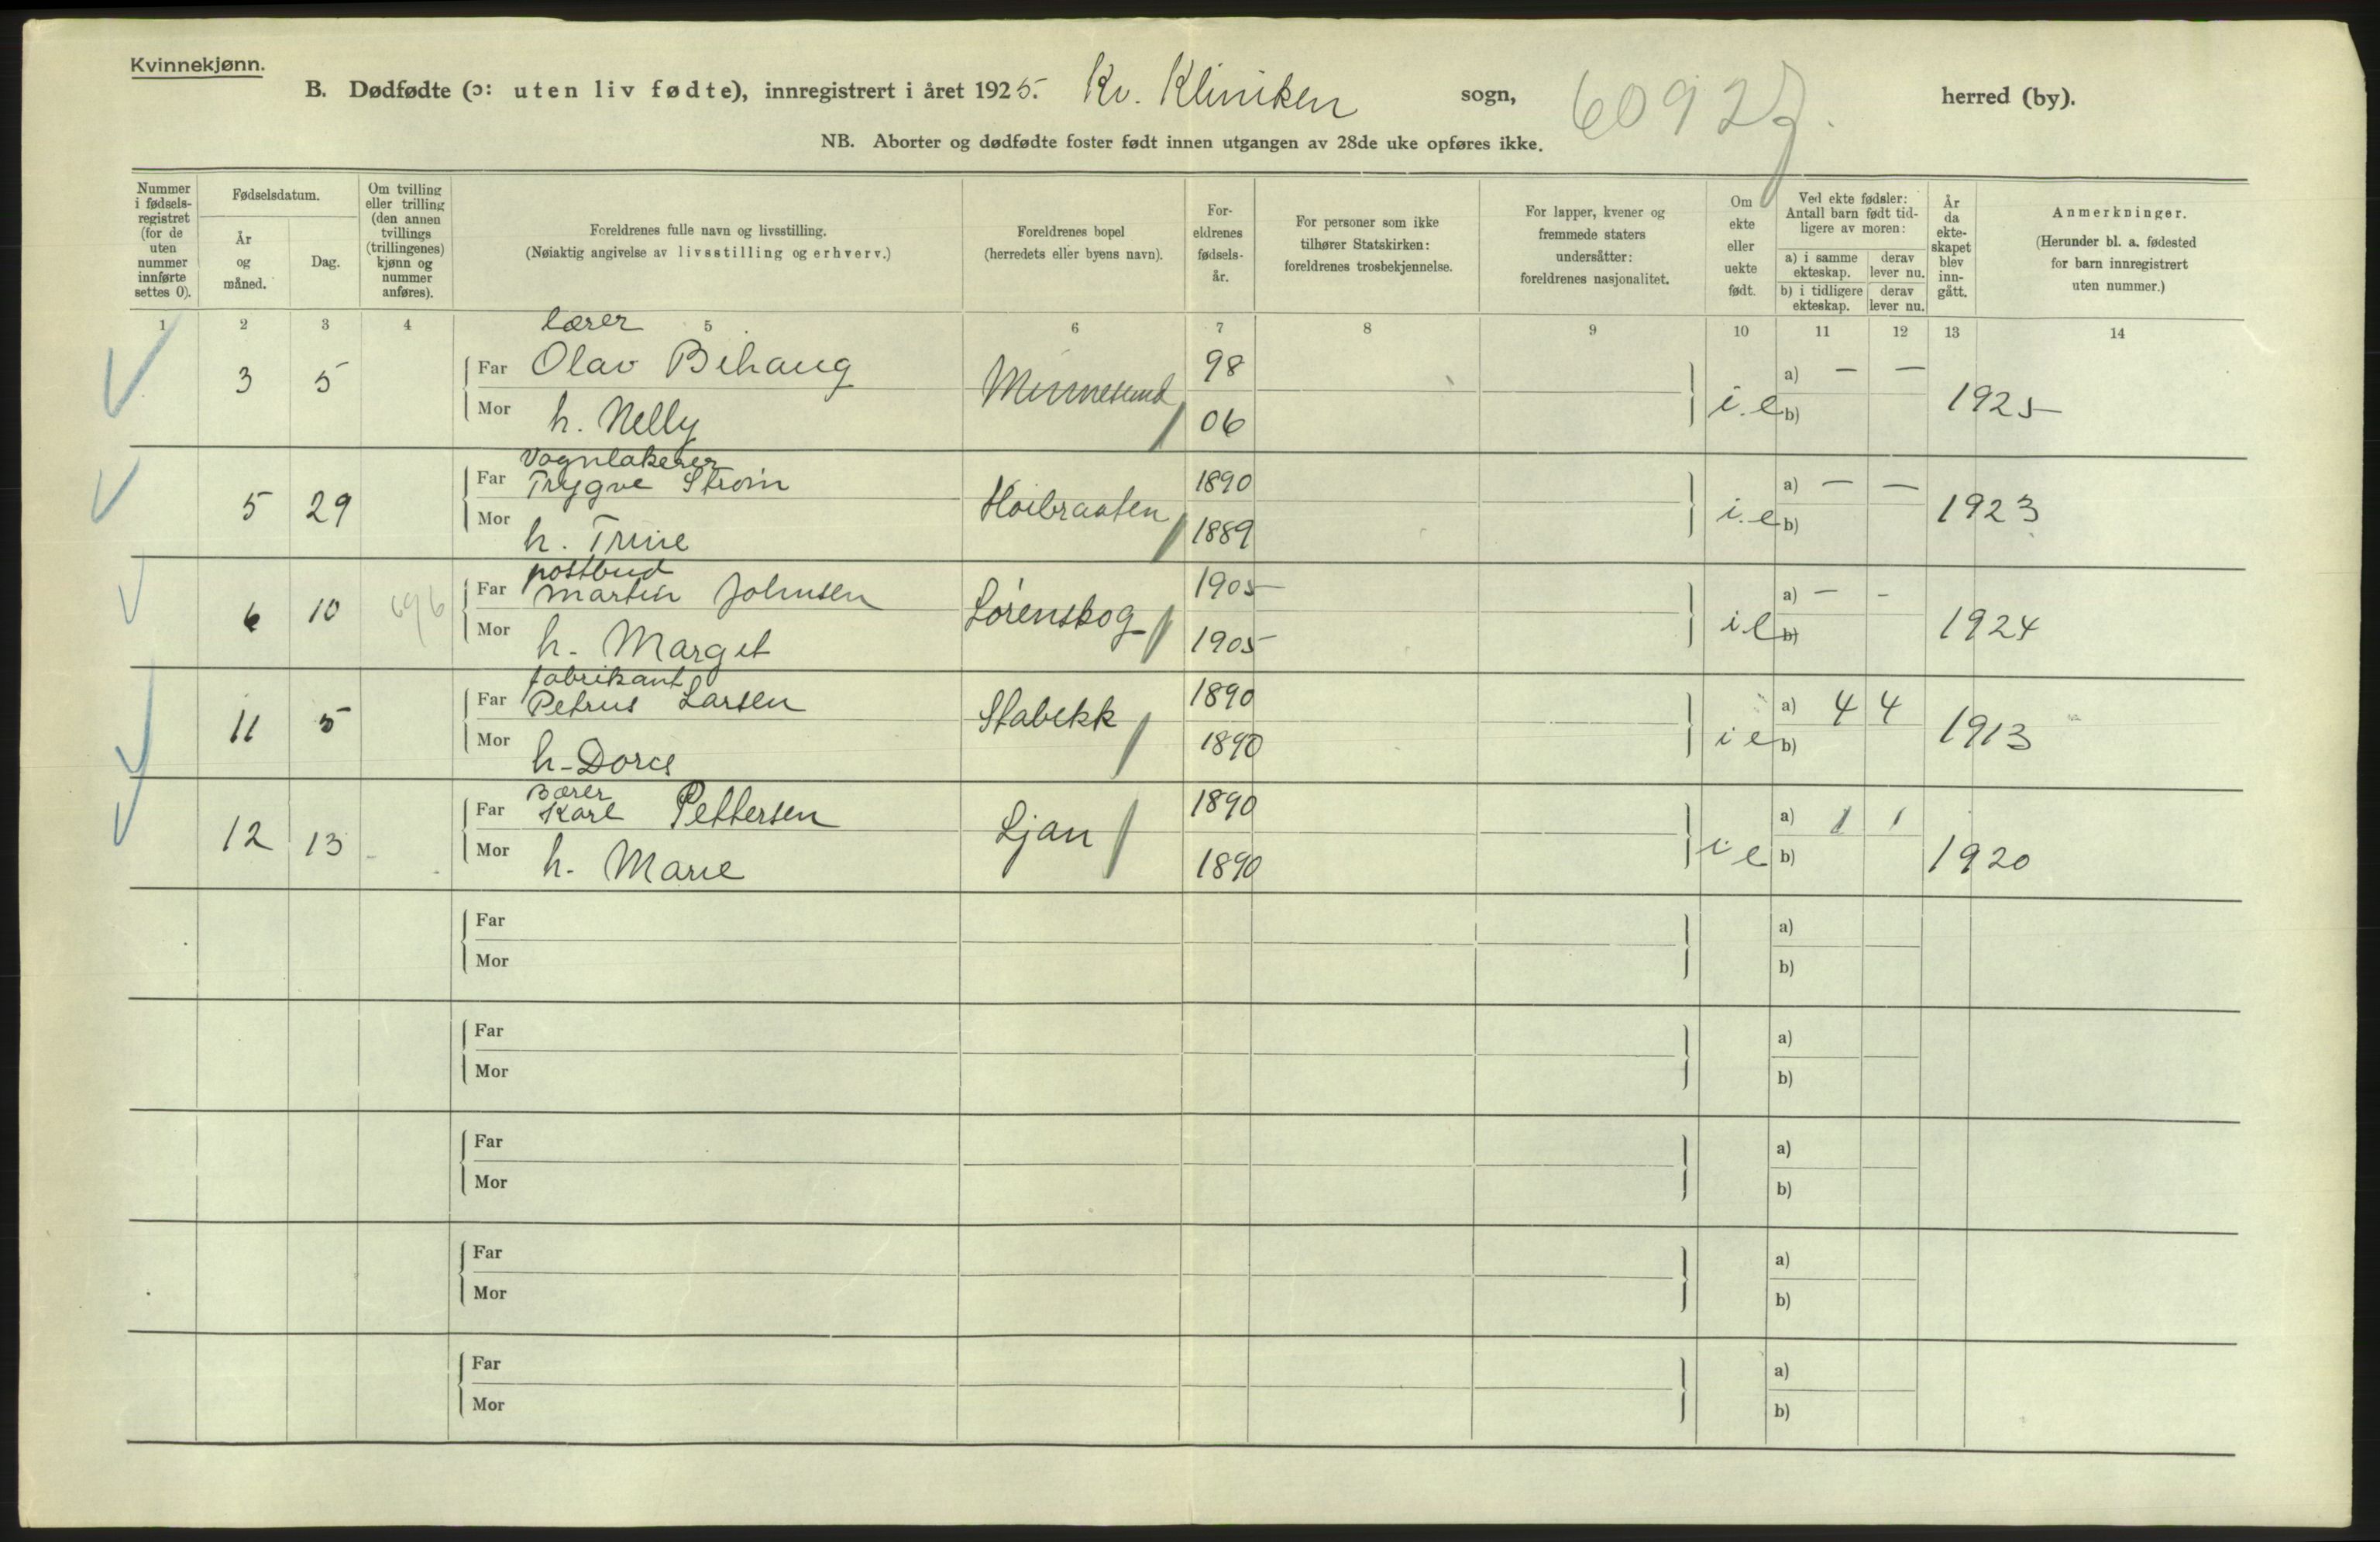 Kvinnekjønn.
B. Dødfødte (ɔ: uten liv fødte), innregistrert i året 1925. Kv. Kliniken sogn, herred (by).
6092
NB. Aborter og dødfødte foster født innen utgangen av 28de uke opføres ikke.
Nummer i fødsels-registret (for de uten nummer innførte settes 0).
Fødselsdatum.
År og måned.
Dag.
Om tvilling eller trilling (den annen tvillings (trillingenes) kjønn og nummer anføres).
Foreldrenes fulle navn og livsstilling.
(Nøiaktig angivelse av livsstilling og erhverv.)
Foreldrenes bopel
(herredets eller byens navn).
For-eldrenes fødsels-år.
For personer som ikke tilhører Statskirken: foreldrenes trosbekjennelse.
For lapper, kvener og fremmede staters undersåtter: foreldrenes nasjonalitet.
Om ekte eller uekte født.
Ved ekte fødsler: Antall barn født tid-ligere av moren:
a) i samme ekteskap.
derav lever nu.
b) i tidligere ekteskap.
derav lever nu.
År da ekte-skapet blev inn-gått.
Anmerkninger.
(Herunder bl. a. fødested for barn innregistrert uten nummer.)
1 2 3 4 5 6 7 8 9 10 11 12 13 14
lærer
3 5 Far Olav Bihaug Minnesund 98 a) — —
Mor h. Nelly 06 i.e b) 1925
Vognlakerer
5 29 Far Trygve Strøm Høibraaten 1890 a) — —
Mor h. Trine 1889 i.e b) 1923
postbud
6 10 Far Martin Johnsen Lørenskog 1905 a) — -
Mor h. Marget 1905 i e b) 1924
fabrikant
11 5 Far Petrus Larsen Stabekk 1890 a) 4 4
Mor h. 1890 i e b) 1913
Bærer
12 13 Far Karl Pettersen Ljan 1890 a) 1 1
Mor h. Marie 1890 i e b) 1920
Far a)
Mor b)
Far a)
Mor b)
Far a)
Mor b)
Far a)
Mor b)
Far a)
Mor b)